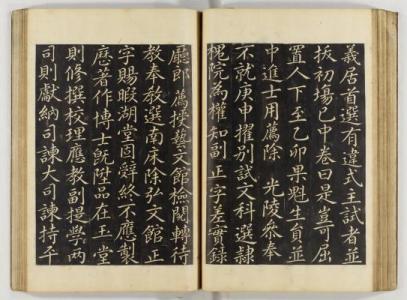 義居首選有違式主試者並
拔初塲已中卷曰是豈可屈
置人下至乙卯果魁生員並
中進士用薦除 光陵叅奉
不就庚申擢別試文科選隷
槐院為權知副正字差實錄
廳郞薦授藝文館檢閱轉待
教奉敎選南床除弘文館正
字賜暇湖堂固辭終不應製
歷著作博士旣陞品在玉堂
則修撰校理應敎副提學兩
司則獻納司諫大司諫持平